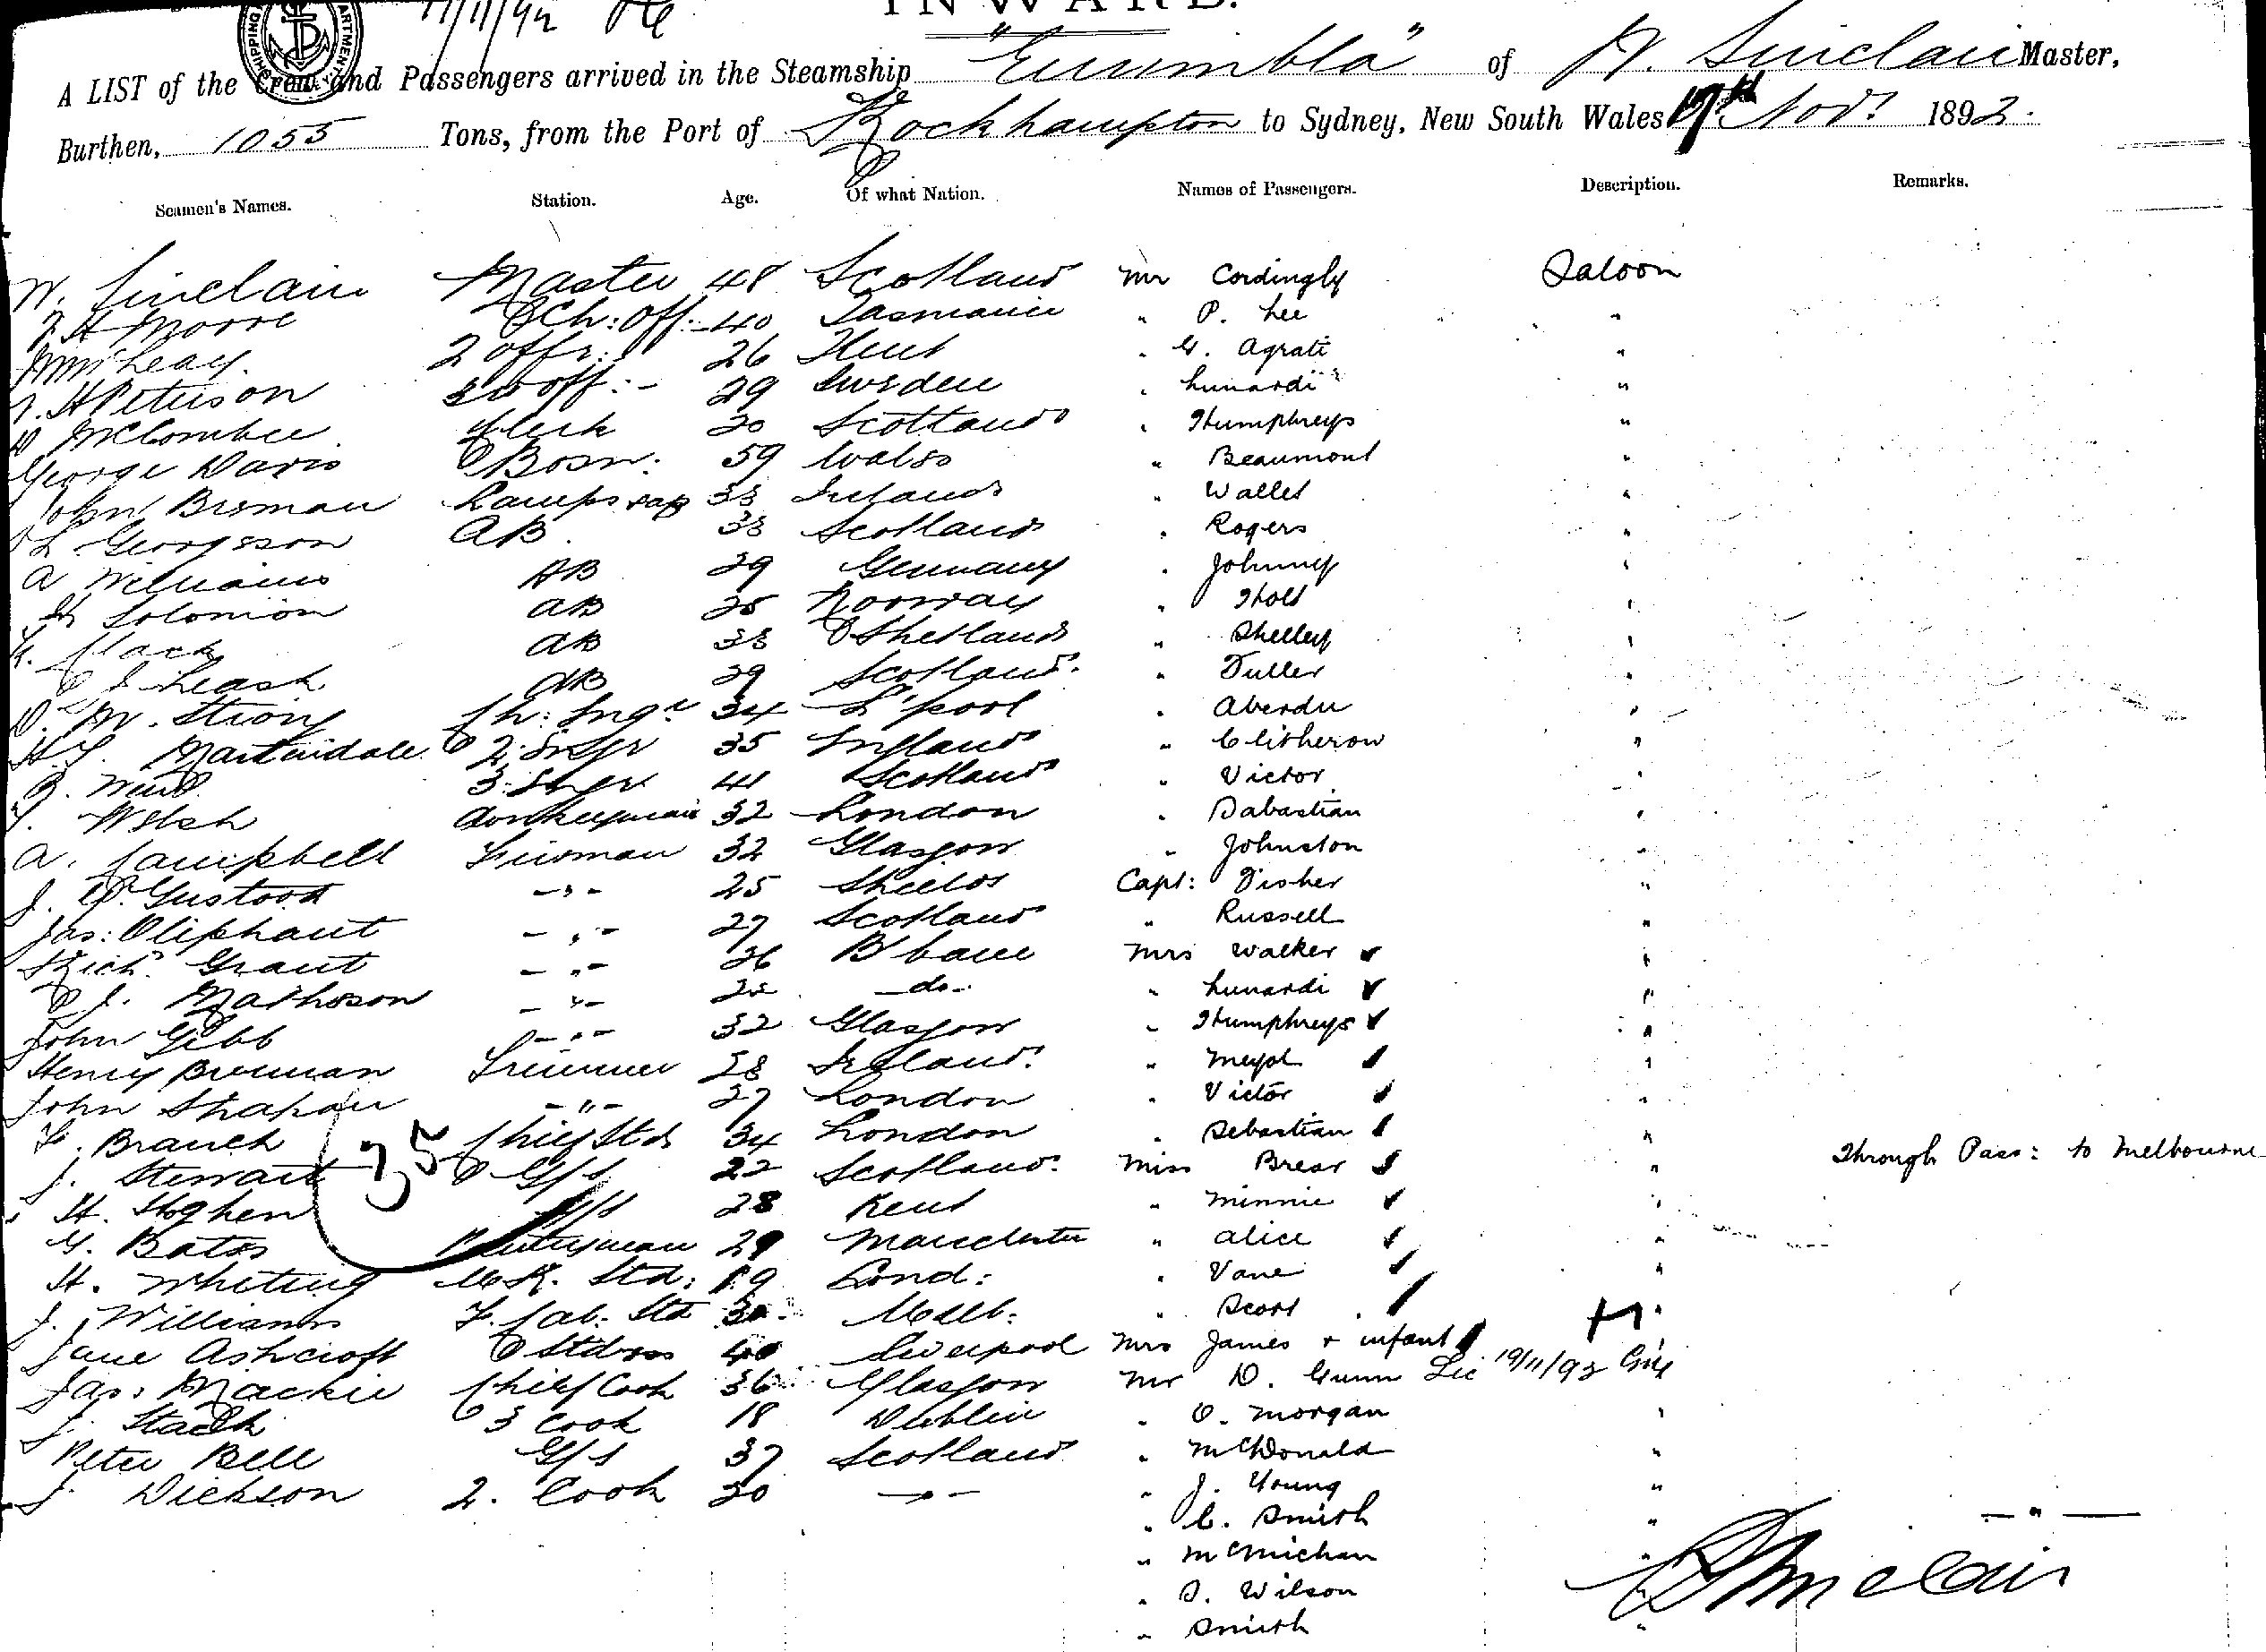 17/11/92
INWARD.
A LIST of the Crew and Passengers arrived in the Steamship "Eurimbla" of W. Sinclair Master,
Burthen, 1055 Tons, from the Port of Rockhampton to Sydney, New South Wales 17th Nov. 1892.
Seamen's Names. Station. Age. Of what Nation. Names of Passengers. Description. Remarks.
W. Sinclair Master 48 Scotland Mr Cordingly Saloon
H Moore Ch: Off: 40 Tasmania " P. Lee "
2 Offr: 26 " G. Agrati "
H Peterson 3rd Off: - 29 Sweden " Lunardi "
D McCombie Clerk 20 Scotland " Humphreys "
George Davis Bosn: 59 Wales " Beaumont "
John Brennan Lamps 33 Ireland " Wallet "
L Georgeson AB 33 Scotland " Rogers "
A Williams AB 29 Germany " Johnny "
H Solomon AB 25 Norway " Holt "
Mack AB 33 Shetland " Shelley "
J Leask AB 29 Scotland " Fuller "
D. M. Strong Ch: Engr 34 L'pool " Aberdee "
H. Martindale 2. Engr 35 England " Clitherow "
R. Weir 3. Engr 41 Scotland " Victor "
Welsh Donkeyman 32 London " Sabastian "
A. Campbell Fireman 32 Glasgow " Johnston "
J. -"- 25 Shields Capt: Fisher "
Jas: Oliphant -"- 27 Scotland " Russell "
Rich. Grant -"- 26 B'bane Mrs Walker "
J. Matheson -"- 25 -do- " Lunardi "
John Gibb -"- 32 Glasgow " Humphreys "
Henry Brennan Trimmer 28 Ireland. " Meyol "
John -"- 27 London " Victor "
F. Branch Chief Std 34 London " Sebastian "
35
J. Stewart G/S 22 Scotland. Miss Brear " Through Pass: to Melbourne
H. G/S 28 Kent " Minnie "
G. Bates Pantryman 29 Manchester " Alice "
H. Whiting M.R. Std: 19 Lond: " Vane "
J. Williams F. Cab. Std 30 Melb: " Scort "
Jane Ashcroft Stdess 40 Liverpool Mrs James + infant
Jas. Mackie Chief Cook 36 Glasgow Mr D. Gunn 19/11/92
J. Stack 3 Cook 18 Dublin " O. Morgan "
Peter Bell G/S 37 Scotland " McDonald "
J Dickson 2. Cook 30 -"- " J. Young "
" C. Smith " -"-
" McMichan "
" S. Wilson "
" Smith "
W Sinclair